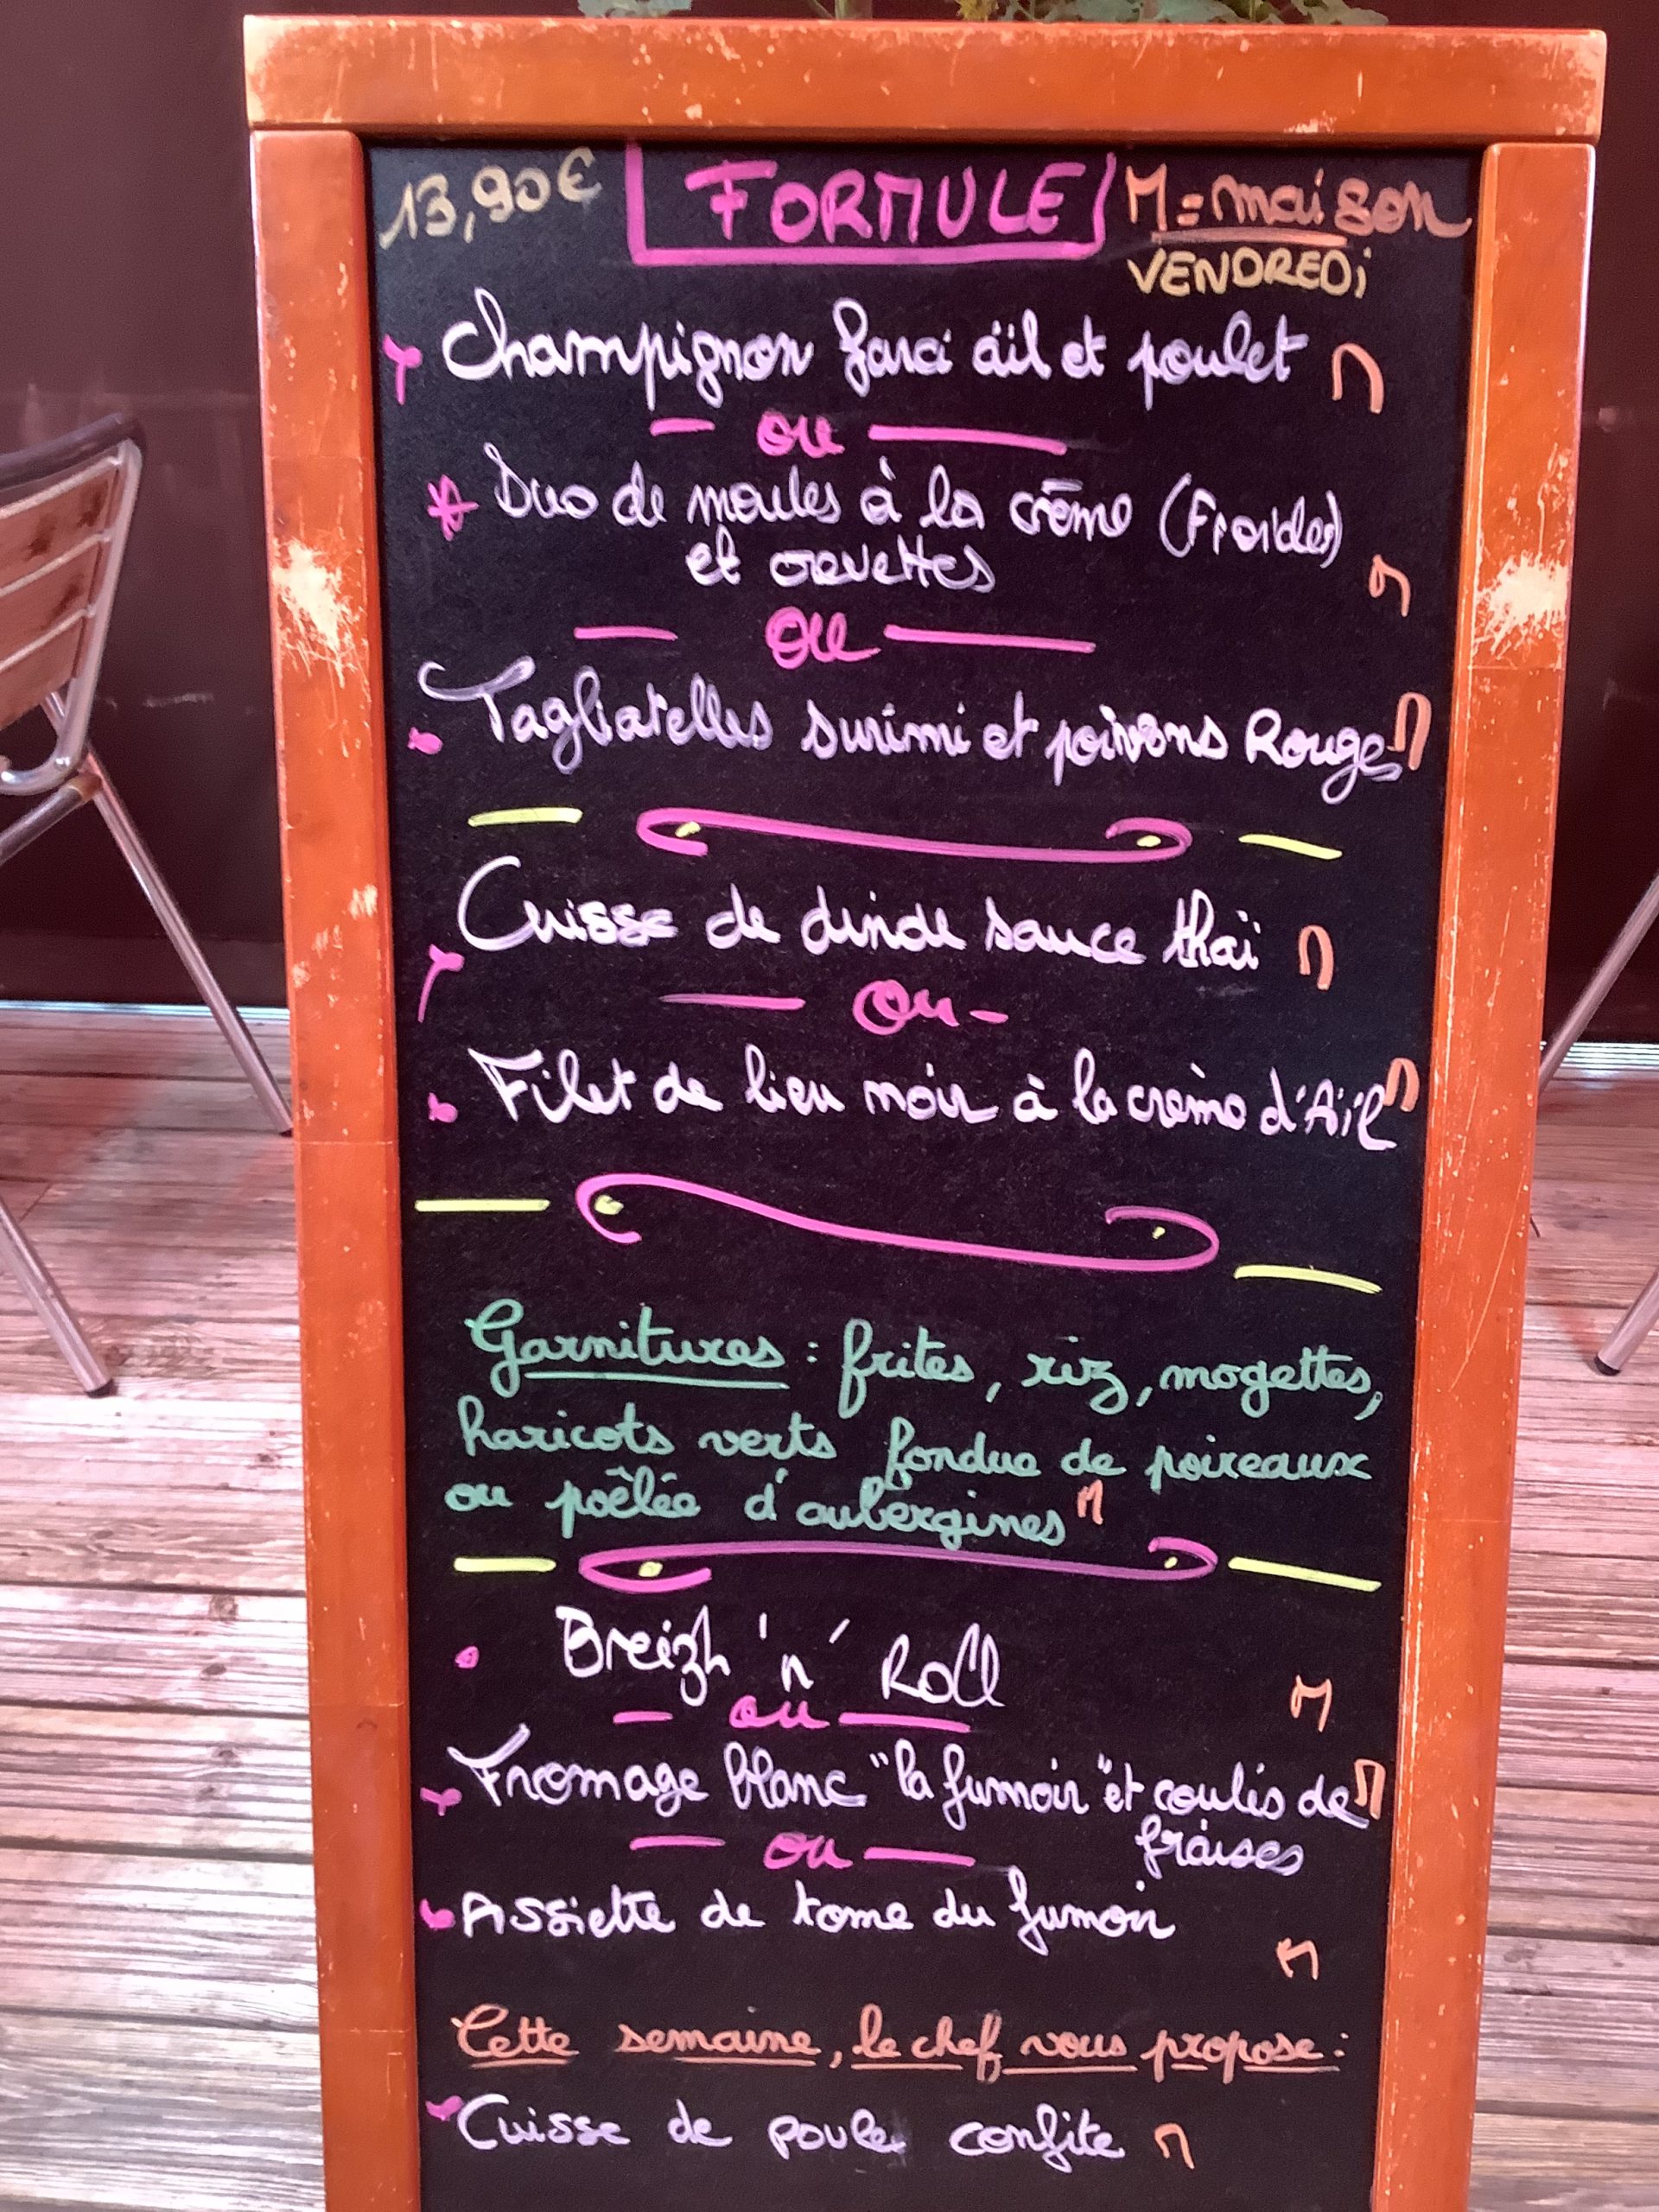 13,90€ FORMULE M = maison
VENDREDi
Champignon farci ail et poulet M
ou
Duo de moules à la crème (Froides)
et crevettes M
ou
Tagliatelles surimi et poivrons Rouges M
Cuisse de dinde sauce thaï M
ou
Filet de lieu noir à la crème d'Ail M
Garnitures : frites, riz, mogettes,
haricots verts fondue de poireaux
ou poêlée d'aubergines M
Breizh 'n' Roll M
ou
Fromage blanc "la fumoir" et coulis de M
fraises
ou
Assiette de tome du fumoir
M
Cette semaine, le chef vous propose :
Cuisse de poule confite M